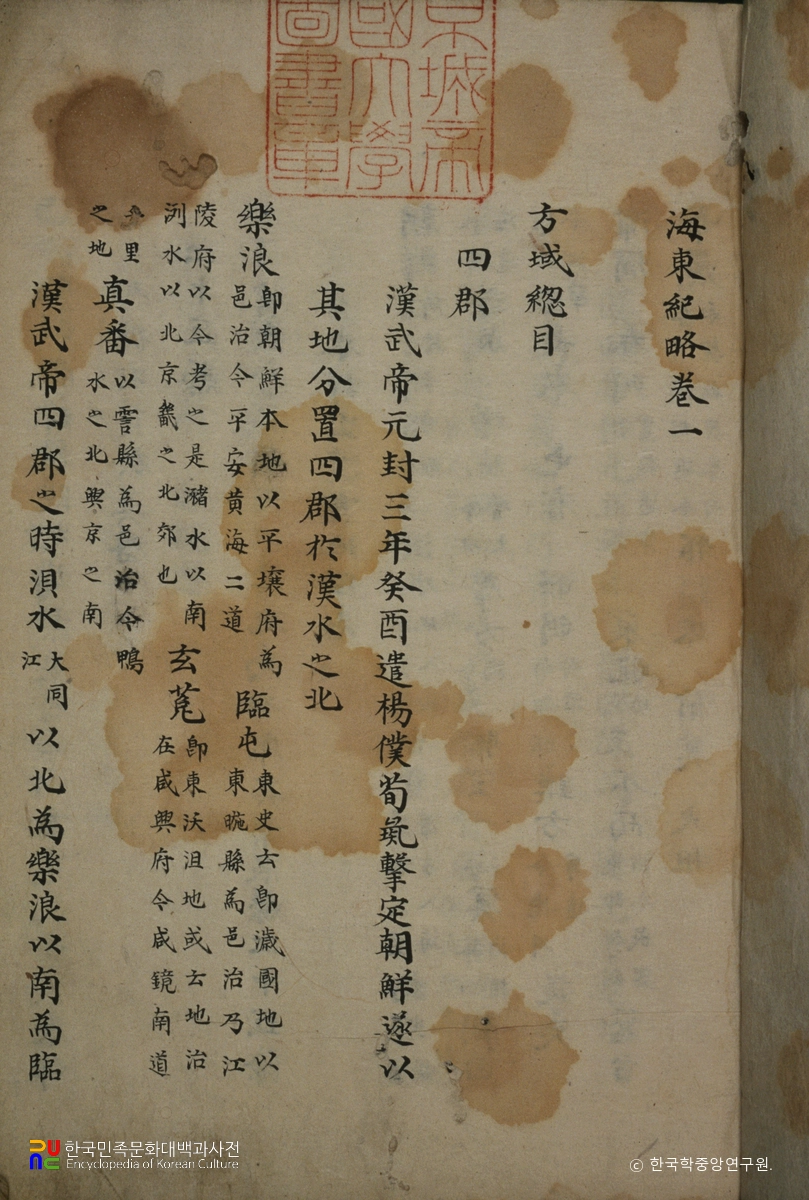 京城帝
國大學
圖書章
海東紀略卷一
方域緫目
四郡
漢武帝元封三年癸酉遣楊僕荀彘擊定朝鮮遂以
其地分置四郡於漢水之北
樂浪
卽朝鮮本地以平壤府為
邑治今平安黄海二道
臨屯
東史云卽濊國地以
東暆縣為邑治乃江
陵府以今考之是瀦水以南
洌水以北京畿之北郊也
玄菟
卽東沃沮地或云地治
在咸興府今咸鏡南道
里
之地
真番
以霅縣為邑治今鴨
水之北興京之南
漢武帝四郡之時浿水
大同
江
以北為樂浪以南為臨
한국민족문화대백과사전
Encyclopedia of Korean Culture
© 한국학중앙연구원.